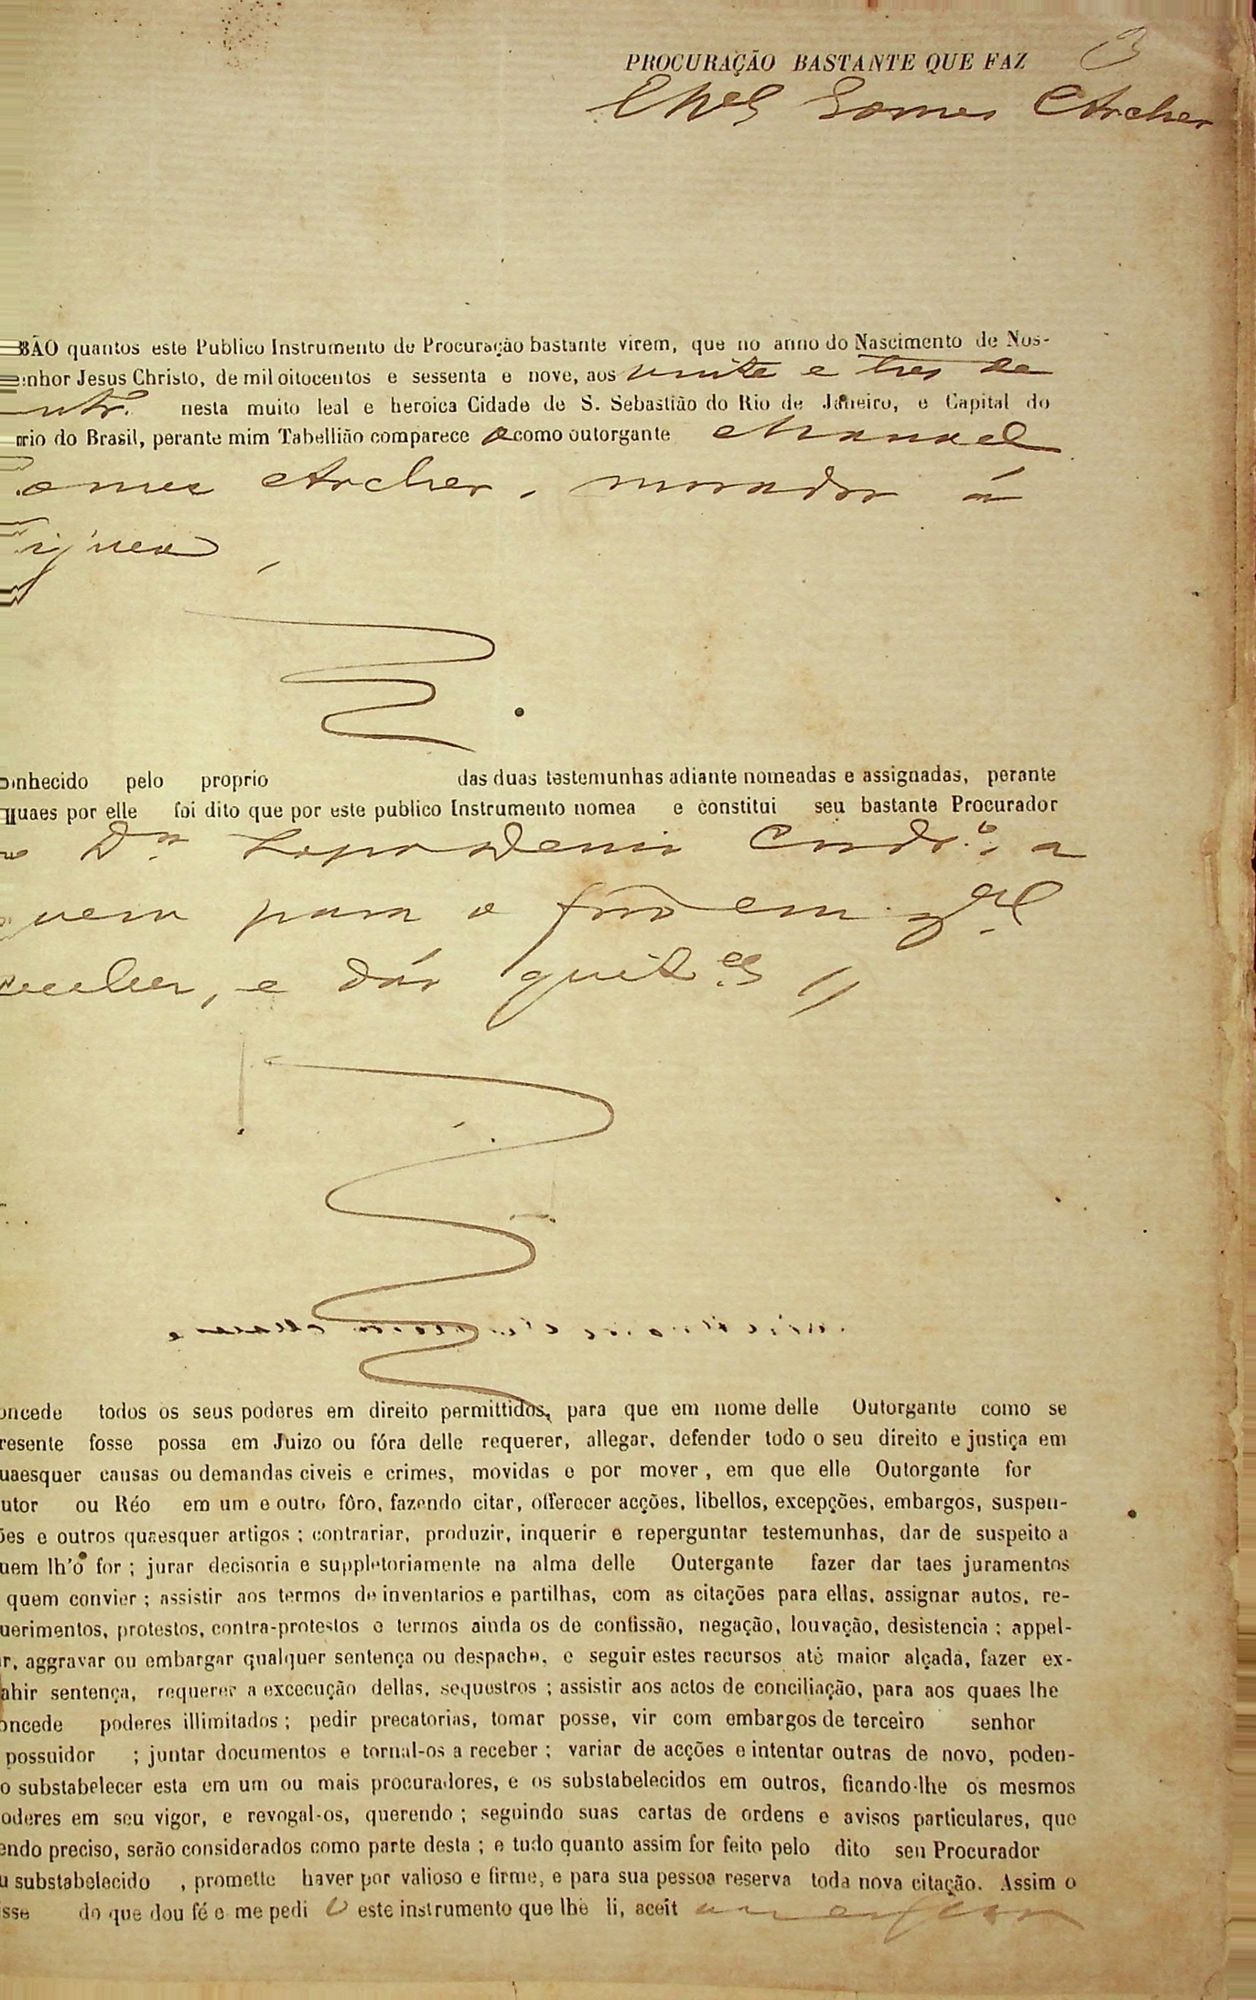 PROCURAÇÃO BASTANTE QUE FAZ 3
Mel Gomes Archer
BÃO quantos este Publico Instrumento de Procuração bastante virem, que no anno do Nascimento de Nos-
enhor Jesus Christo, de mil oitocentos e sessenta e nove, aos vinte e tres de
nesta muito leal e heroica Cidade de S. Sebastião do Rio de Janeiro, e Capital do
rio do Brasil, perante mim Tabellião comparece o como outorgante Manoel
omes Archer, morador á
ijuca,
onhecido pelo proprio das duas testemunhas adiante nomeadas e assignadas, perante
quaes por elle foi dito que por este publico Instrumento nomea e constitui seu bastante Procurador
o Dr a
quem para o fôro em gal
receber, e dár quit.es
oncede todos os seus poderes em direito permittidos, para que em nome delle Outorgante como se
resente fosse possa em Juizo ou fóra delle requerer, allegar, defender todo o seu direito e justiça em
uaesquer causas ou demandas civeis e crimes, movidas e por mover, em que elle Outorgante for
utor ou Réo em um e outro fôro, fazendo citar, offerecer acções, libellos, excepções, embargos, suspen-
ões e outros quaesquer artigos; contrariar, produzir, inquerir e reperguntar testemunhas, dar de suspeito a
uem lh'o for; jurar decisoria e suppletoriamente na alma delle Outergante fazer dar taes juramentos
quem convier; assistir aos termos de inventarios e partilhas, com as citações para ellas, assignar autos, re-
uerimentos, protestos, contra-protestos e termos ainda os de confissão, negação, louvação, desistencia; appel-
ar, aggravar ou embargar qualquer sentença ou despacho, e seguir estes recursos até maior alçada, fazer ex-
ahir sentença, requerer a excecução dellas, sequestros; assistir aos actos de conciliação, para aos quaes lhe
oncede poderes illimitados; pedir precatorias, tomar posse, vir com embargos de terceiro senhor
possuidor; juntar documentos e tornal-os a receber; variar de acções e intentar outras de novo, poden-
o substabelecer esta em um ou mais procuradores, e os substabelecidos em outros, ficando-lhe os mesmos
oderes em seu vigor, e revogal-os, querendo; seguindo suas cartas de ordens e avisos particulares, que
endo preciso, serão considerados como parte desta; e tudo quanto assim for feito pelo dito seu Procurador
u substabelecido, promette haver por valioso e firme, e para sua pessoa reserva toda nova citação. Assim o
isse do que dou fé e me pedi o este instrumento que lhe li, aceit